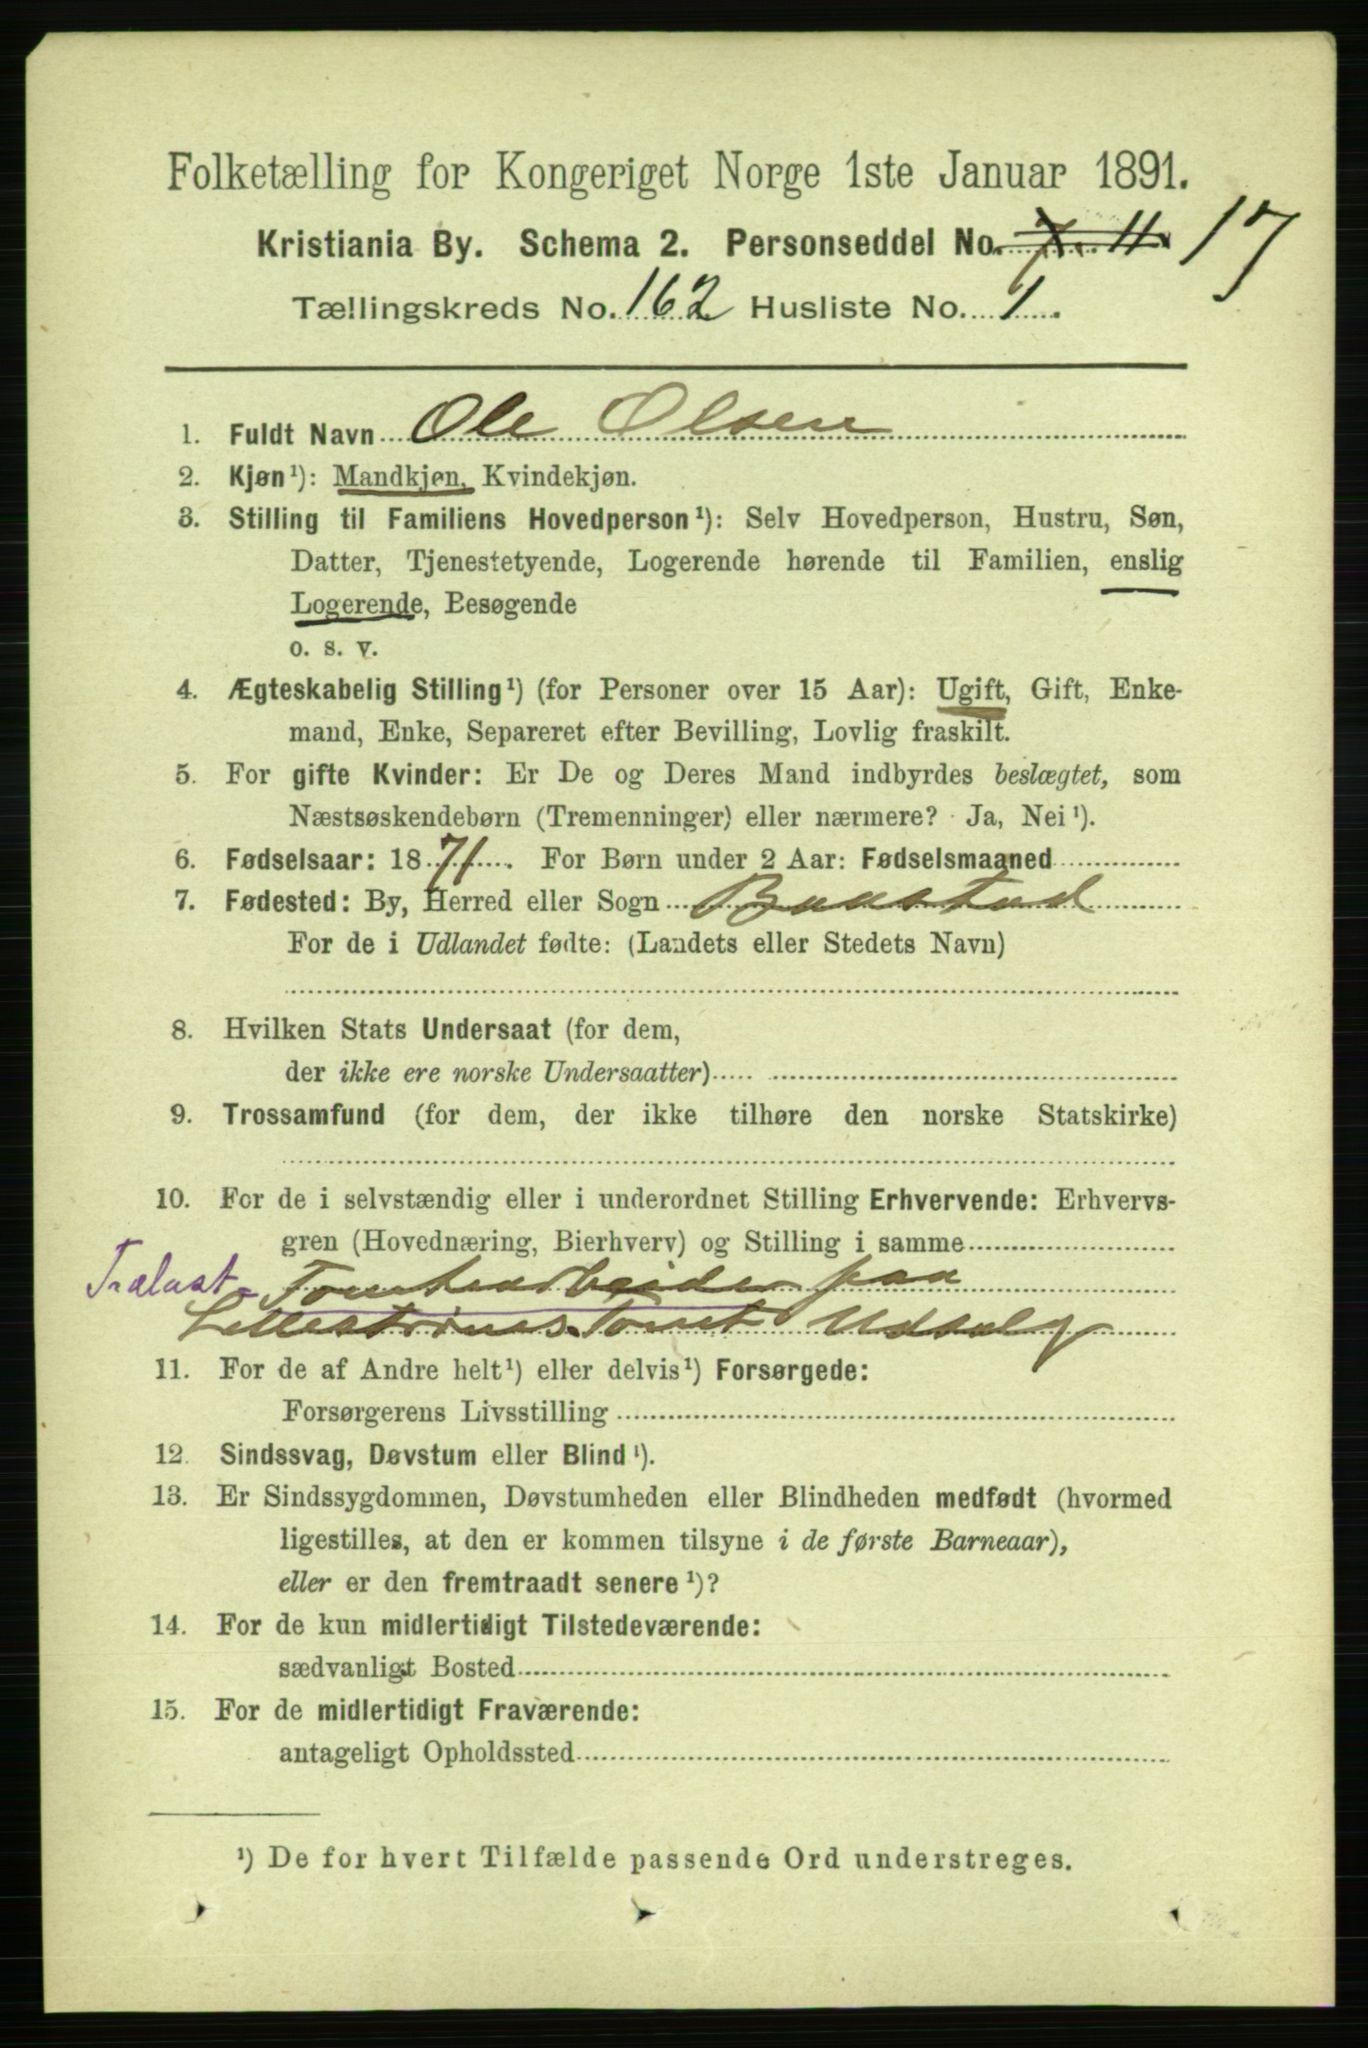 Folketælling for Kongeriget Norge 1ste Januar 1891.
Kristiania By. Schema 2. Personseddel No. 7. 11. 17
Tællingskreds No. 162 Husliste No. 1.
1. Fuldt Navn Ole Olsen
2. Kjøn¹): Mandkjøn, Kvindekjøn.
3. Stilling til Familiens Hovedperson¹): Selv Hovedperson, Hustru, Søn,
Datter, Tjenestetyende, Logerende hørende til Familien, enslig
Logerende, Besøgende
o. s. v.
4. Ægteskabelig Stilling¹) (for Personer over 15 Aar): Ugift, Gift, Enke-
mand, Enke, Separeret efter Bevilling, Lovlig fraskilt.
5. For gifte Kvinder: Er De og Deres Mand indbyrdes beslægtet, som
Næstsøskendebørn (Tremenninger) eller nærmere? Ja, Nei¹).
6. Fødselsaar: 1871. For Børn under 2 Aar: Fødselsmaaned
7. Fødested: By, Herred eller Sogn Baastad
For de i Udlandet fødte: (Landets eller Stedets Navn)
8. Hvilken Stats Undersaat (for dem,
der ikke ere norske Undersaatter)
9. Trossamfund (for dem, der ikke tilhøre den norske Statskirke)
10. For de i selvstændig eller i underordnet Stilling Erhvervende: Erhvervs-
gren (Hovednæring, Bierhverv) og Stilling i samme
Trælast- Tomtearbeider paa
Lillestrøms Tomt Udsalg
11. For de af Andre helt¹) eller delvis¹) Forsørgede:
Forsørgerens Livsstilling
12. Sindssvag, Døvstum eller Blind¹).
13. Er Sindssygdommen, Døvstumheden eller Blindheden medfødt (hvormed
ligestilles, at den er kommen tilsyne i de første Barneaar),
eller er den fremtraadt senere¹)?
14. For de kun midlertidigt Tilstedeværende:
sædvanligt Bosted
15. For de midlertidigt Fraværende:
antageligt Opholdssted
¹) De for hvert Tilfælde passende Ord understreges.